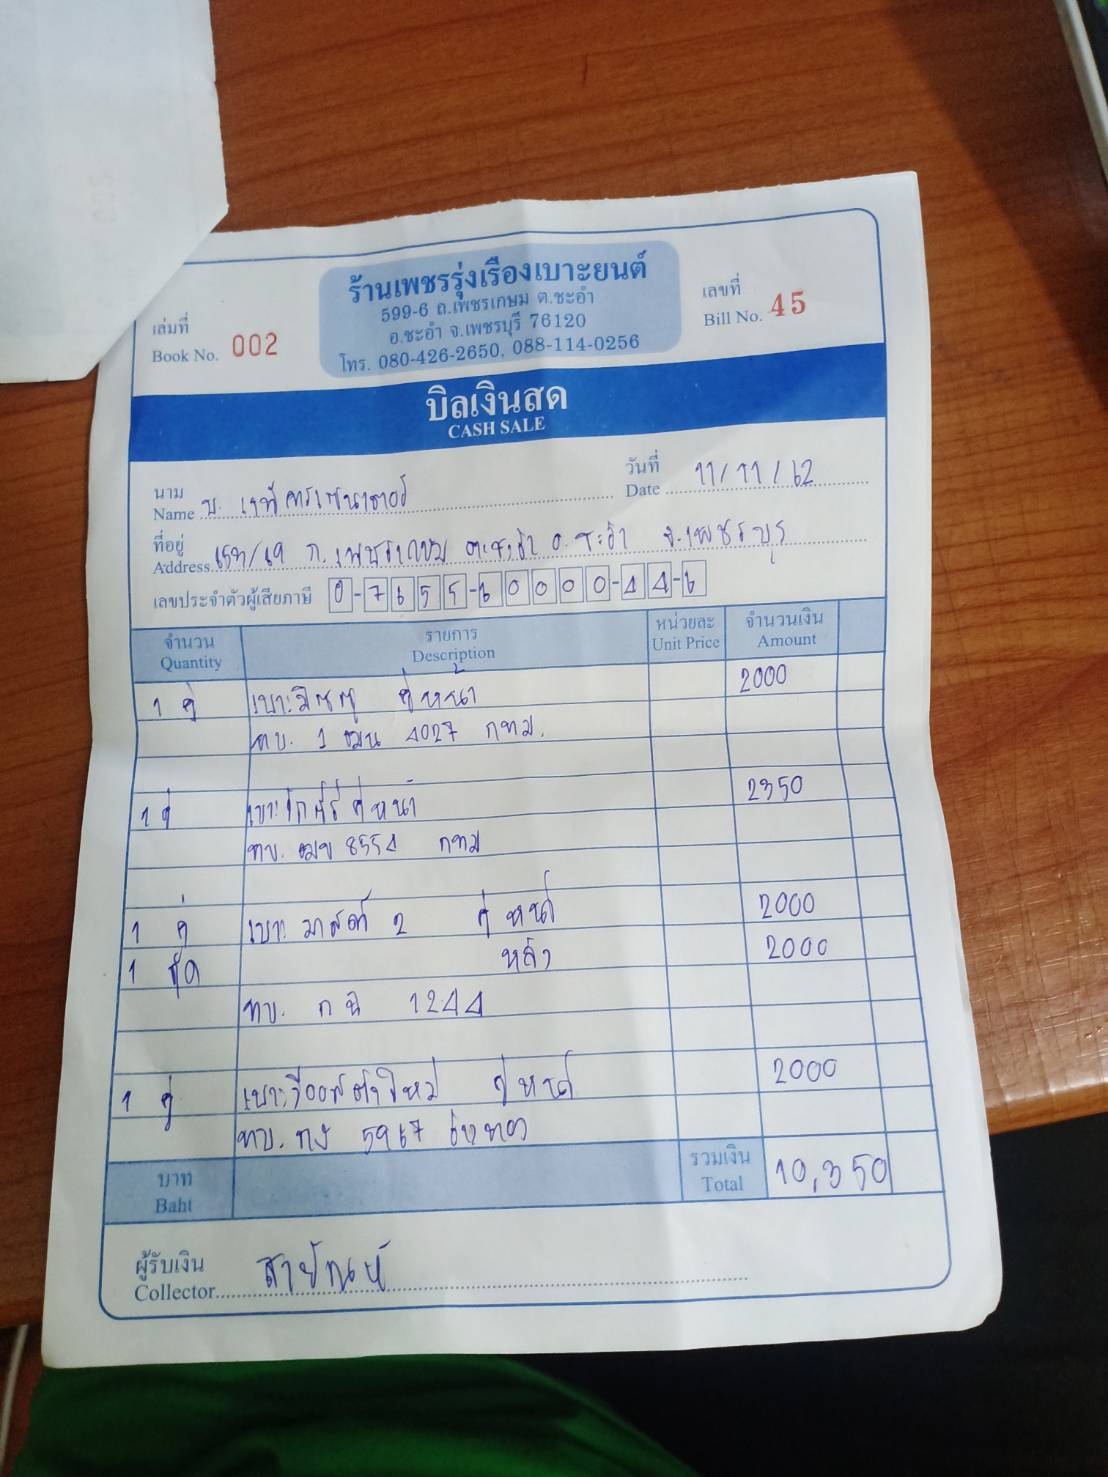 ร้านเพชรรุ่งเรืองเบาะยนต์
599-6 ถ.เพชรเกษม ต.ชะอำ
อ.ชะอำ จ.เพชรบุรี 76120
โทร. 080-426-2650, 088-114-0256
เล่มที่
Book No. 002
เลขที่
Bill No. 45
บิลเงินสด
CASH SALE
นาม
Name บ.
วันที่
Date 11/11/62
ที่อยู่
Address ถ.เพชรเกษม ต.ชะอำ อ.ชะอำ จ.เพชรบุรี
เลขประจำตัวผู้เสียภาษี 0-7655-60000-44-6
จำนวน รายการ หน่วยละ จำนวนเงิน
Quantity Description Unit Price Amount
1 คู่ เบาะมิซซู คู่หน้า 2000
ทบ. 1 ฒน 4027 กทม.
1 คู่ คู่หน้า 2350
ทบ. 8554 กทม
1 คู่ เบาะ มาสด้า 2 คู่ หน้า 2000
1 ชุด หลัง 2000
ทบ. 1244
1 คู่ เบาะวีออสตัวใหม่ คู่ หน้า 2000
ทบ. กง 5967
บาท
Baht
รวมเงิน
Total 10,350
ผู้รับเงิน
Collector สายัณห์